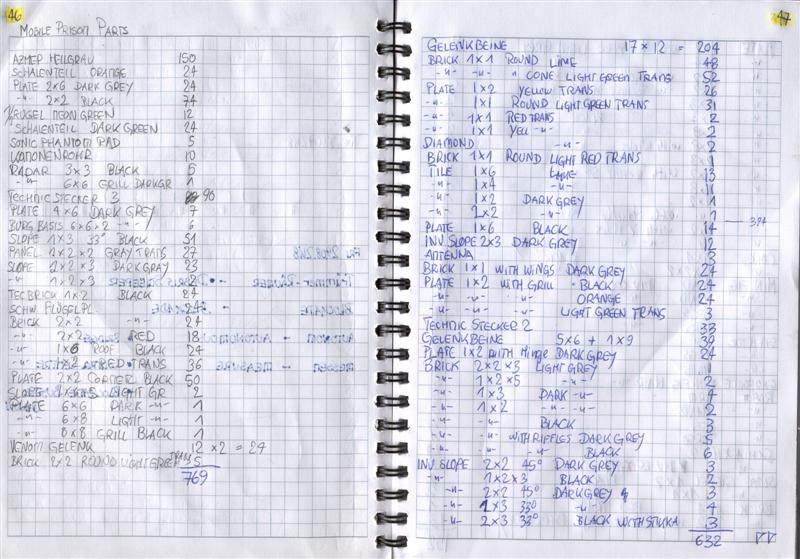 46
MOBILE PRISON PARTS
AZMER HELLGRAU 150
SCHALENTEIL ORANGE 24
PLATE 2x6 DARK GREY 24
-"- 2x2 BLACK 74
FLÜGEL NEON GREEN 12
SCHALENTEIL DARK GREEN 24
SONIC PHANTOM PAD 5
KANONENROHR 10
RADAR 3x3 BLACK 5
-"- 6x6 GRILL DARKGR 1
TECHNIC STECKER 3 90
PLATE 4x6 DARK GREY 7
BURG BASIS 6x6x2 -"- 6
SLOPE 1x3 33° BLACK 51
PANEL 1x2x2 GRAY TRANS 27
SLOPE 1x2x3 DARK GRAY 23
-"- 1x2x3 -"- 2
TEC BRICK 1x2 BLACK 24
SCHW. FLÜGELPL. 24
BRICK 2x2 -"- 24
-"- 2x2 RED 18
-"- 1x6 ROOF BLACK 24
-"- 1x2 RED TRANS 36
PLATE 2x2 CORNER BLACK 50
SLOPE LIGHT GR 2
PLATE 6x6 DARK -"- 1
-"- 6x8 LIGHT -"- 1
-"- 8x8 GRILL BLACK 1
VENOM GELENK 12 x 2 = 24
BRICK 2x2 ROUND LIGHT GREEN TRANS 5
769
47
GELENKBEINE 17 x 12 = 204
BRICK 1x1 ROUND LIME 48
-"- -"- " CONE LIGHT GREEN TRANS 52
PLATE 1x2 YELLOW TRANS 26
-"- 1x1 ROUND LIGHT GREEN TRANS 31
-"- 1x1 RED TRANS 2
-"- 1x1 YELL -"- 2
DIAMOND -"- 2
BRICK 1x1 ROUND LIGHT RED TRANS 1
TILE 1x6 LIME 13
-"- 1x4 -"- 11
-"- 1x2 DARK GREY 1
-"- 2x2 -"- 1
394
PLATE 1x6 BLACK 14
INV SLOPE 2x3 DARK GREY 12
ANTENNA 3
BRICK 1x1 WITH WINGS DARK GREY 24
PLATE 1x2 WITH GRILL BLACK 24
-"- -"- " " ORANGE 24
-"- -"- " " LIGHT GREEN TRANS 3
TECHNIC STECKER 2 33
GELENKBEINE 5x6 + 1x9 39
PLATE 1x2 WITH HINGE DARK GREY 24
BRICK 2x2x3 LIGHT GREY 1
-"- 1x2x5 -"- 2
-"- 1x3 DARK -"- 4
-"- 1x2 -"- -"- 2
-"- -"- BLACK 3
-"- -"- WITH RIFFLES DARK GREY 5
-"- -"- -"- -"- BLACK 6
INV SLOPE 2x2 45° DARK GREY 3
-"- 1x2x3 BLACK 2
-"- 2x2 45° DARK GREY 3
-"- 2x3 33° -"- 4
-"- 2x3 33° BLACK WITH STIKKA 3
632